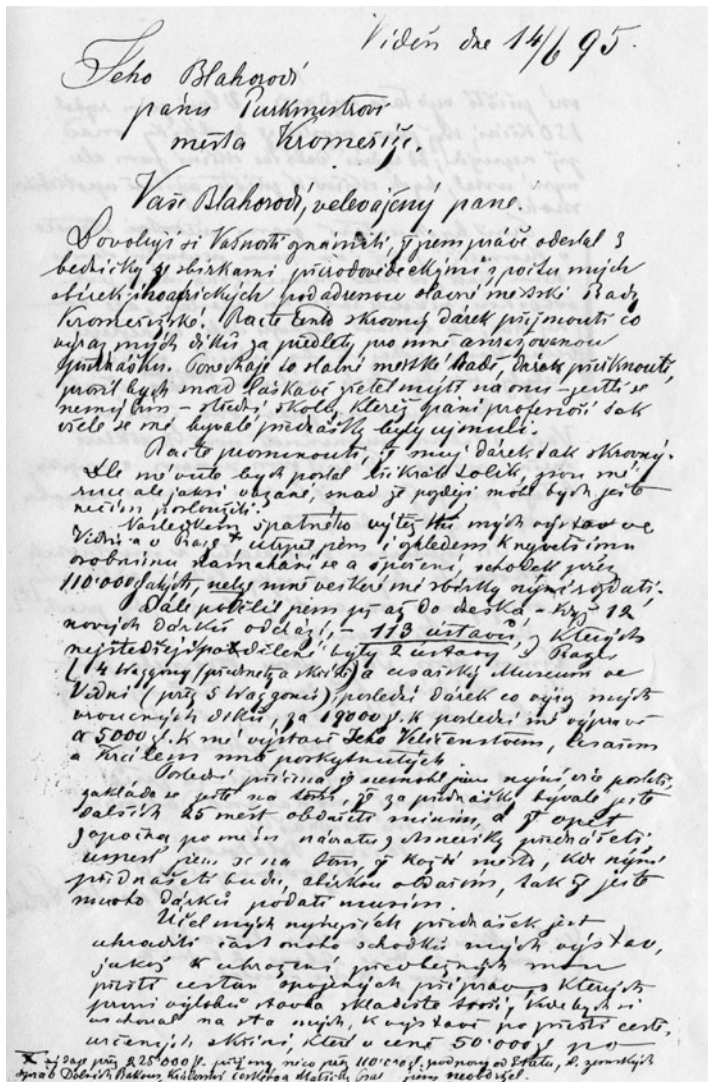 Vídeň dne 14/6 95.
Jeho Blahorodí
pánu Purkmistrovi
města Kroměříže.
Vaše Blahorodí, velevážený pane.
Dovoluji si Vašnosti oznámiti, že jsem právě odeslal 3
bedničky se sbírkami přírodovědeckými z počtu mých
sbírek jihoafrických pod adresou slavné městské Rady
Kroměřížské. Račte tento skrovný dárek přijmouti co
výraz mých díků za předlety pro mne
přednášku. Ponechaje to slavné městské Radě, dárek přiřknouti,
prosil bych snad laskavě zřetel míti na onu – jestli se
nemýlím – střední školu, kteréž páni profesoři tak
vřele se mé bývalé přednášky byly ujmuli.
Račte prominouti, že můj dárek tak skrovný.
Dle mé vůle bych poslal kolik, jsou mé
ruce ale jaksi vázané, snad že později mohl bych ještě
něčím posloužiti.
Následkem špatného výtěžku mých výstav ve
Vídni a v Praze × utrpěl jsem i ohledem k největšímu
osobnímu namáhání se a šetření, schodek přes
110'000 zlatých, nelze mně veškeré mé sbírky nyní rozdati.
Dále podělil jsem již až do dneška, – když 12
nových dárků odchází, – 113 ústavů, z kterých
nejštědřeji poděleni byly 2 ústavy v Praze
(14 Waggony (předměty a skříně) a císařský Museum ve
Vídni (přes 5 Waggonů), poslední dárek co výraz mých
vroucných díků, za 19000 zl. k poslední mé výpravě
a 5000 zl. k mé výstavě Jeho Veličenstvem, Císařem
a Králem mně poskytnutých.
Poslední příčina že nemohl jsem nyní více poslati,
zakládá se ještě na tom, že za přednášky bývalé ještě
dalších 25 měst obdařiti míním, a že opět
započna po mém návratu z Ameriky přednášeti
umínil jsem si na tom, že každé město, kde nyní
přednášeti budu, sbírkou obdařím, tak že ještě
mnoho dárků podati musím.
Účel mých nynějších přednášek jest
uhraditi část moho schodků mých výstav,
jakož k uhražení předběžných mou
příští cestou spojených příprav z kterých
první výlohou stavba skladiště tvoří, kde bych si
uschoval na sta mých, k výstavě po příští cestě
určených skříní, které v ceně 50'000 zl. po